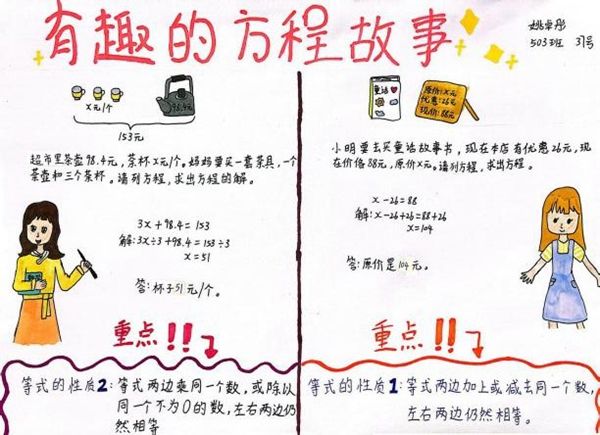 有趣的方程故事
503班 31号
x元/个
98.4元
153元
超市里茶壶98.4元，茶杯x元/个。妈妈要买一套茶具，一个
茶壶和三个茶杯。请列方程，求出方程的解。
3x+98.4=153
解：3x÷3+98.4=153÷3
x=51
答：杯子51元/个。
重点!!
等式的性质2：等式两边乘同一个数，或除以
同一个不为0的数，左右两边仍
然相等
童话
原价：x元
优惠：26元
现价：88元
小明要去买童话故事书，现在本店有优惠26元，现
在价格88元，原价x元。请列方程，求出方程。
x-26=88
解：x-26+26=88+26
x=104
答：原价是104元。
重点!!
等式的性质1：等式两边加上或减去同一个数，
左右两边仍然相等。